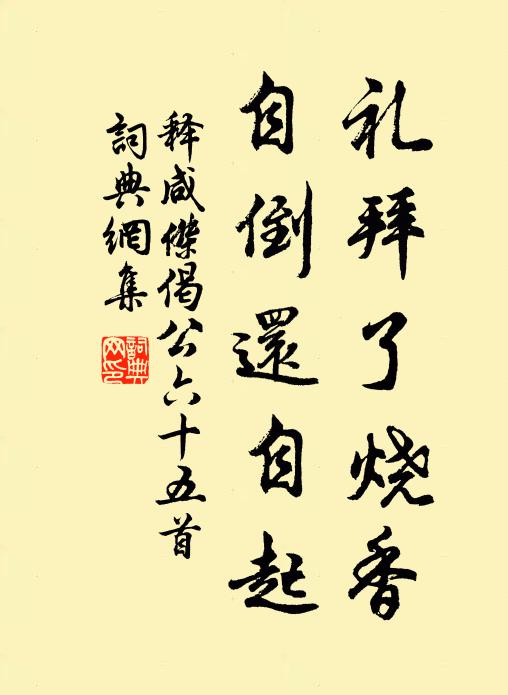 礼拜了烧香
自倒還自起
释咸傑偈公六十五首
詞典網集
詞典网印